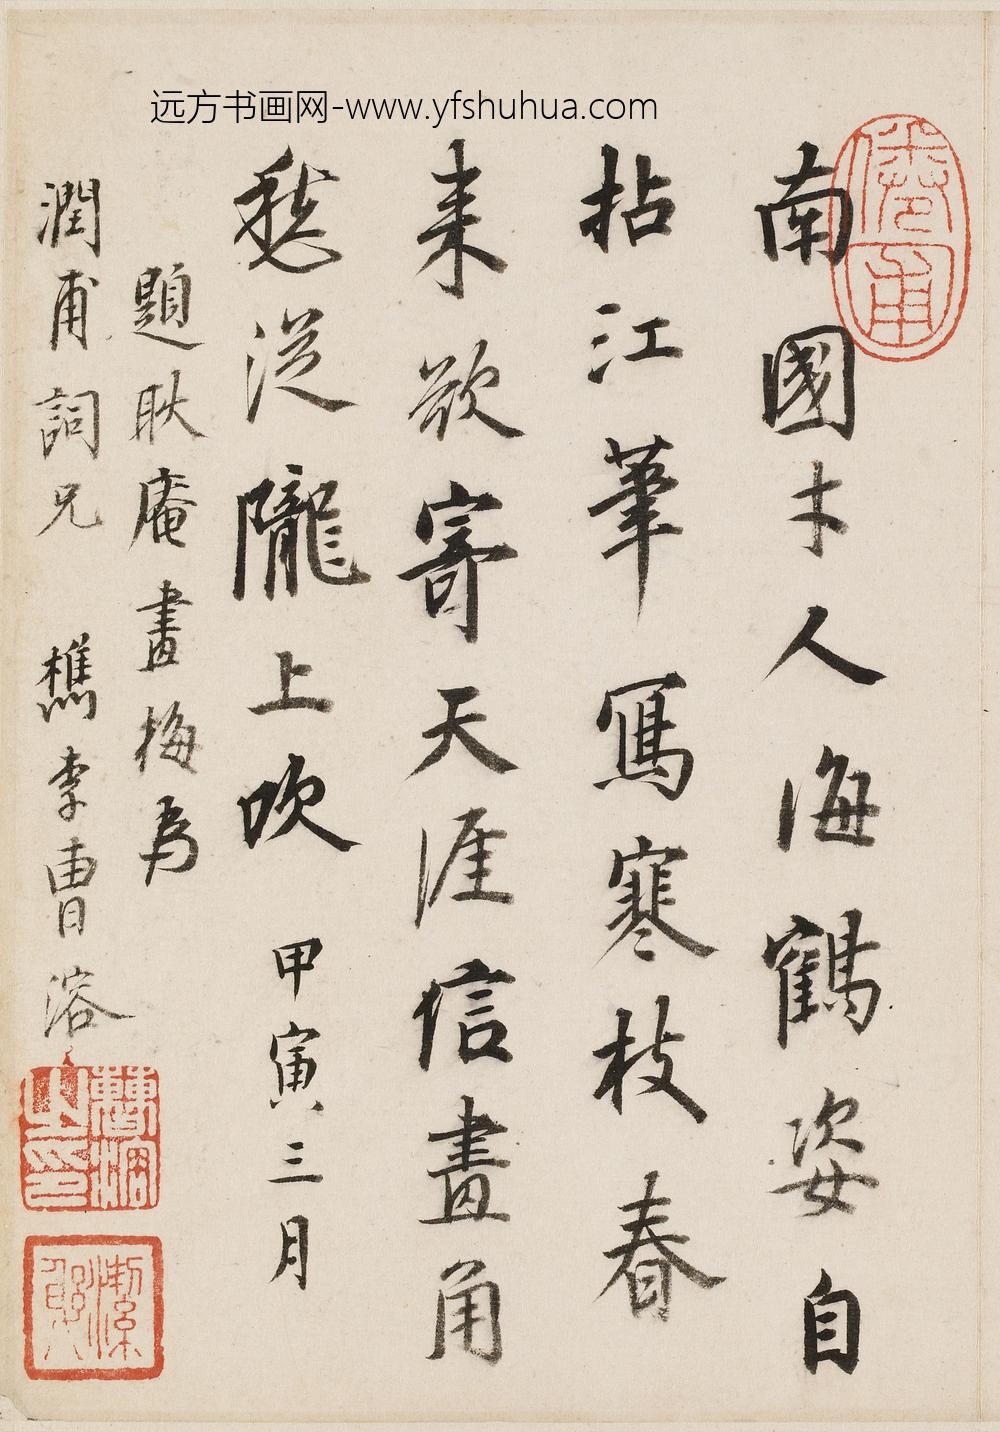 远方书画网-www.yfshuhua.com
南國才人海鶴姿自
拈江筆寫寒枝春
来欲寄天涯信畫角
愁從隴上吹 甲寅三月
題耿庵畫梅為
潤甫詞兄 檇李曹溶
曹溶之印